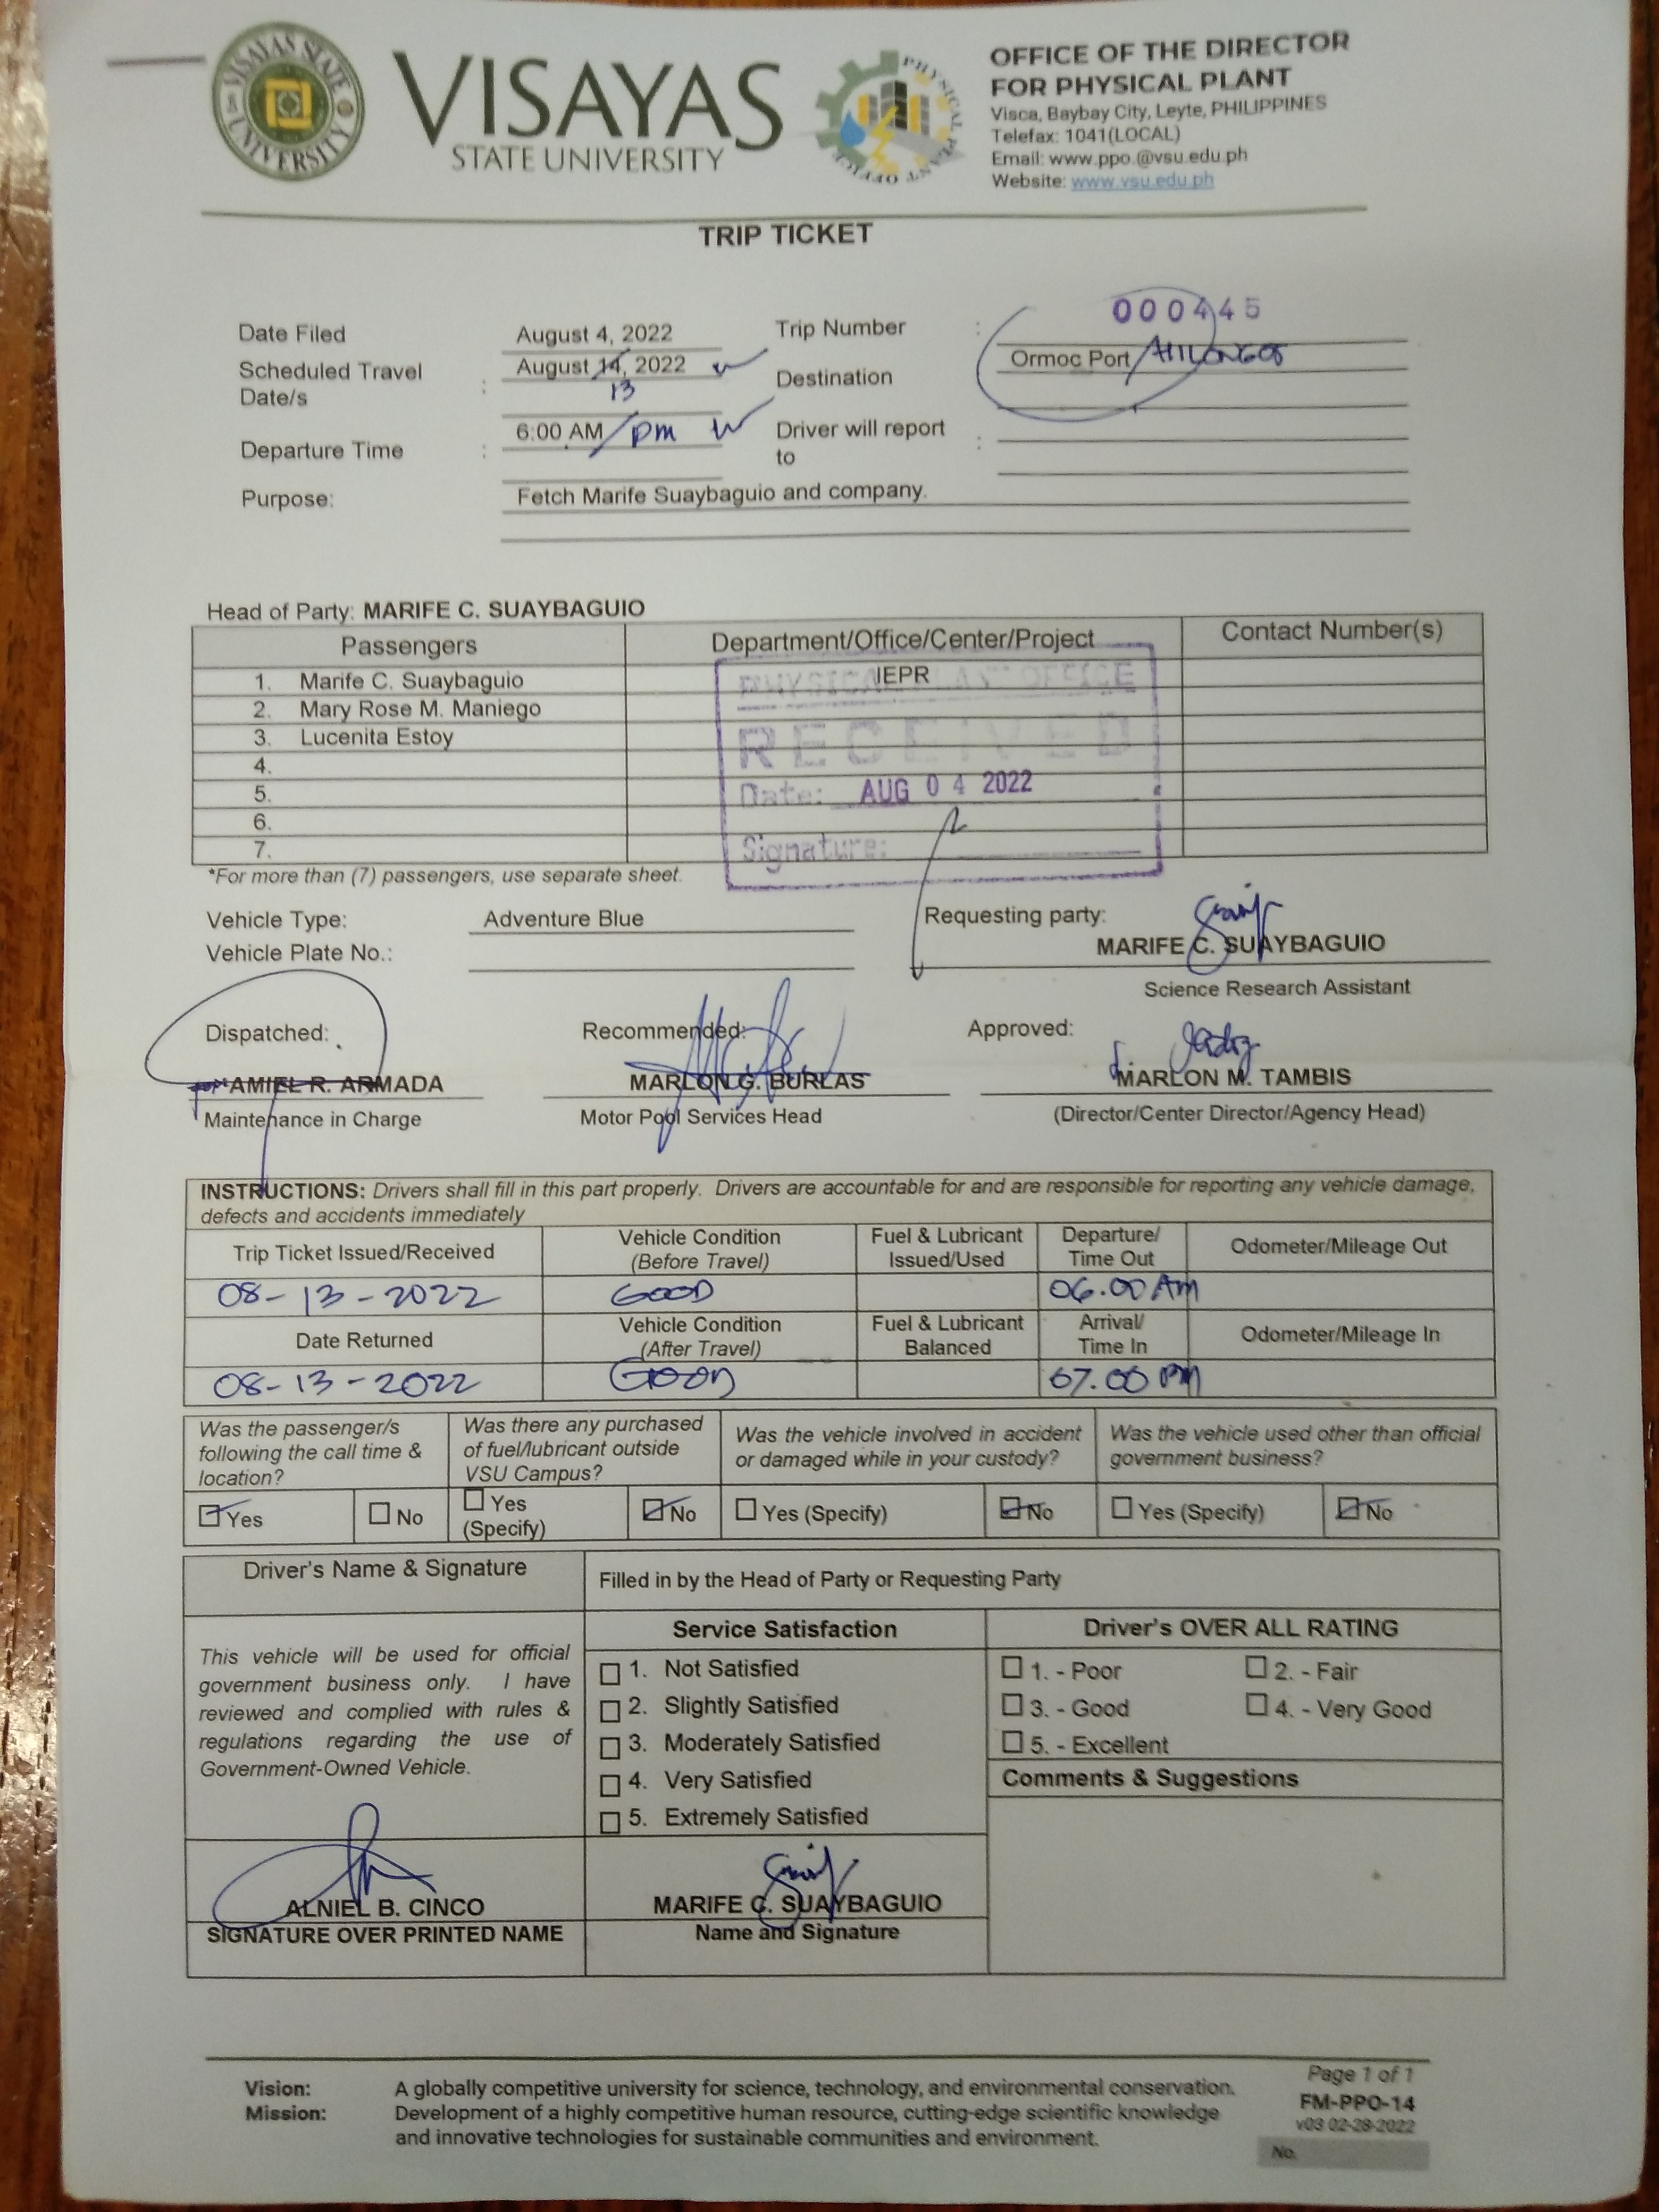 VISAYAS STATE UNIVERSITY
VISAYAS
STATE UNIVERSITY
PHYSICAL PLANT OFFICE
OFFICE OF THE DIRECTOR
FOR PHYSICAL PLANT
Visca, Baybay City, Leyte, PHILIPPINES
Telefax: 1041(LOCAL)
Email: www.ppo.@vsu.edu.ph
Website: www.vsu.edu.ph
TRIP TICKET
Date Filed August 4, 2022 Trip Number : 000445
Scheduled Travel Date/s : August 14, 2022 13 Destination Ormoc Port /
Departure Time : 6:00 AM / pm Driver will report to :
Purpose: Fetch Marife Suaybaguio and company.
Head of Party: MARIFE C. SUAYBAGUIO
Passengers Department/Office/Center/Project Contact Number(s)
1. Marife C. Suaybaguio IEPR
2. Mary Rose M. Maniego
3. Lucenita Estoy
4.
5.
6.
7.
PHYSICAL PLANT OFFICE
RECEIVED
Date: AUG 04 2022
Signature:
*For more than (7) passengers, use separate sheet.
Vehicle Type: Adventure Blue Requesting party:
Vehicle Plate No.: MARIFE C. SUAYBAGUIO
Science Research Assistant
Dispatched: Recommended: Approved:
AMIEL R. ARMADA MARLON G. BURLAS MARLON M. TAMBIS
Maintenance in Charge Motor Pool Services Head (Director/Center Director/Agency Head)
INSTRUCTIONS: Drivers shall fill in this part properly. Drivers are accountable for and are responsible for reporting any vehicle damage,
defects and accidents immediately
Trip Ticket Issued/Received Vehicle Condition (Before Travel) Fuel & Lubricant Issued/Used Departure/ Time Out Odometer/Mileage Out
08-13-2022 GOOD 06.00 Am
Date Returned Vehicle Condition (After Travel) Fuel & Lubricant Balanced Arrival/ Time In Odometer/Mileage In
08-13-2022 GOOD 07.00 PM
Was the passenger/s following the call time & location? Was there any purchased of fuel/lubricant outside VSU Campus? Was the vehicle involved in accident or damaged while in your custody? Was the vehicle used other than official government business?
Yes No Yes (Specify) No Yes (Specify) No Yes (Specify) No
Driver's Name & Signature Filled in by the Head of Party or Requesting Party
Service Satisfaction Driver's OVER ALL RATING
This vehicle will be used for official
government business only. I have
reviewed and complied with rules &
regulations regarding the use of
Government-Owned Vehicle.
1. Not Satisfied
2. Slightly Satisfied
3. Moderately Satisfied
4. Very Satisfied
5. Extremely Satisfied
1. - Poor 2. - Fair
3. - Good 4. - Very Good
5. - Excellent
Comments & Suggestions
ALNIEL B. CINCO MARIFE C. SUAYBAGUIO
SIGNATURE OVER PRINTED NAME Name and Signature
Vision: A globally competitive university for science, technology, and environmental conservation.
Mission: Development of a highly competitive human resource, cutting-edge scientific knowledge
and innovative technologies for sustainable communities and environment.
Page 1 of 1
FM-PPO-14
v03 02-28-2022
No.